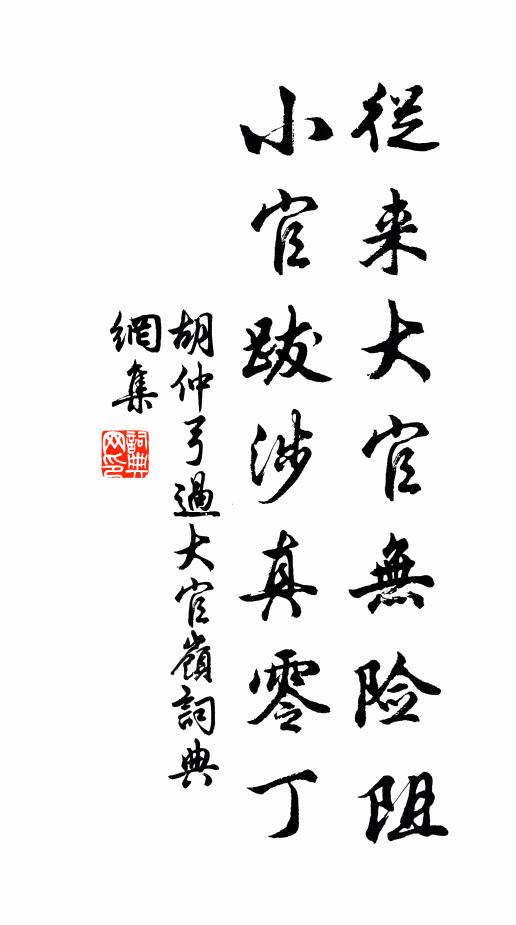 從来大官無险阻
小官跋涉真零丁
胡仲弓過大官嶺詞典
網集
詞典
网印